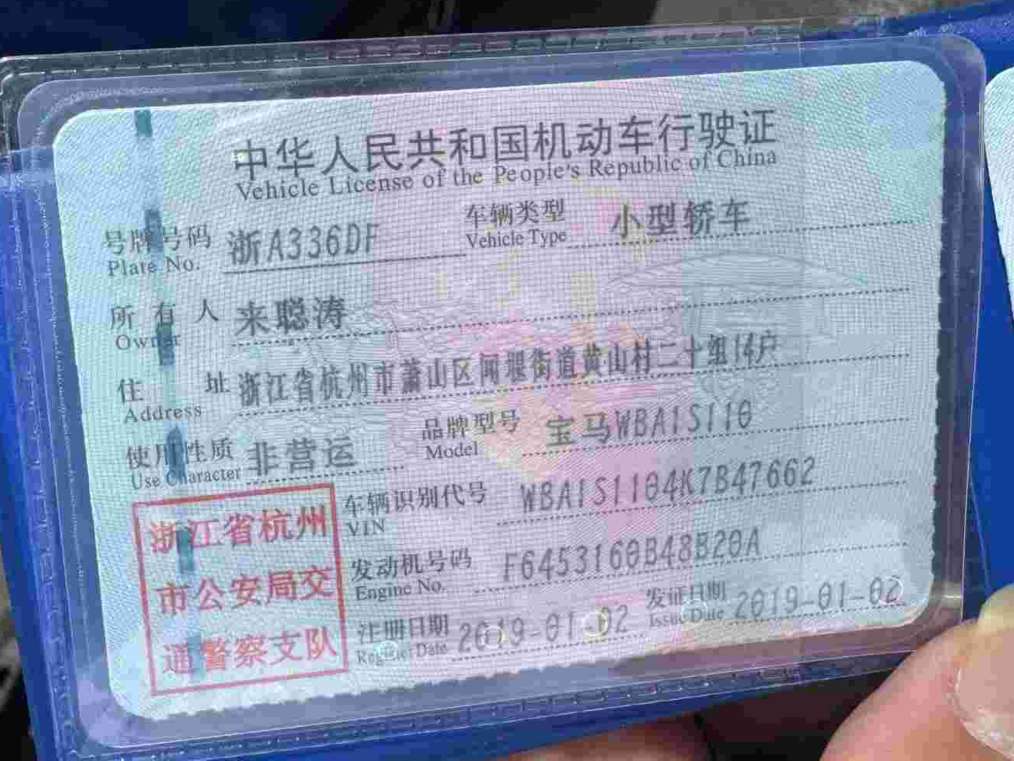 中华人民共和国机动车行驶证
Vehicle License of the People's Republic of China
号牌号码 浙A336DF 车辆类型 小型轿车
Plate No. Vehicle Type
所有人 来聪涛
Owner
住址 浙江省杭州市萧山区闻堰街道黄山村二十组14户
Address
使用性质 非营运 品牌型号 宝马WBA1S110
Use Character Model
浙江省杭州
市公安局交
通警察支队
车辆识别代号 WBA1S1104K7B47662
VIN
发动机号码 F6453160B48B20A
Engine No.
注册日期 2019-01-02 发证日期 2019-01-02
Register Date Issue Date